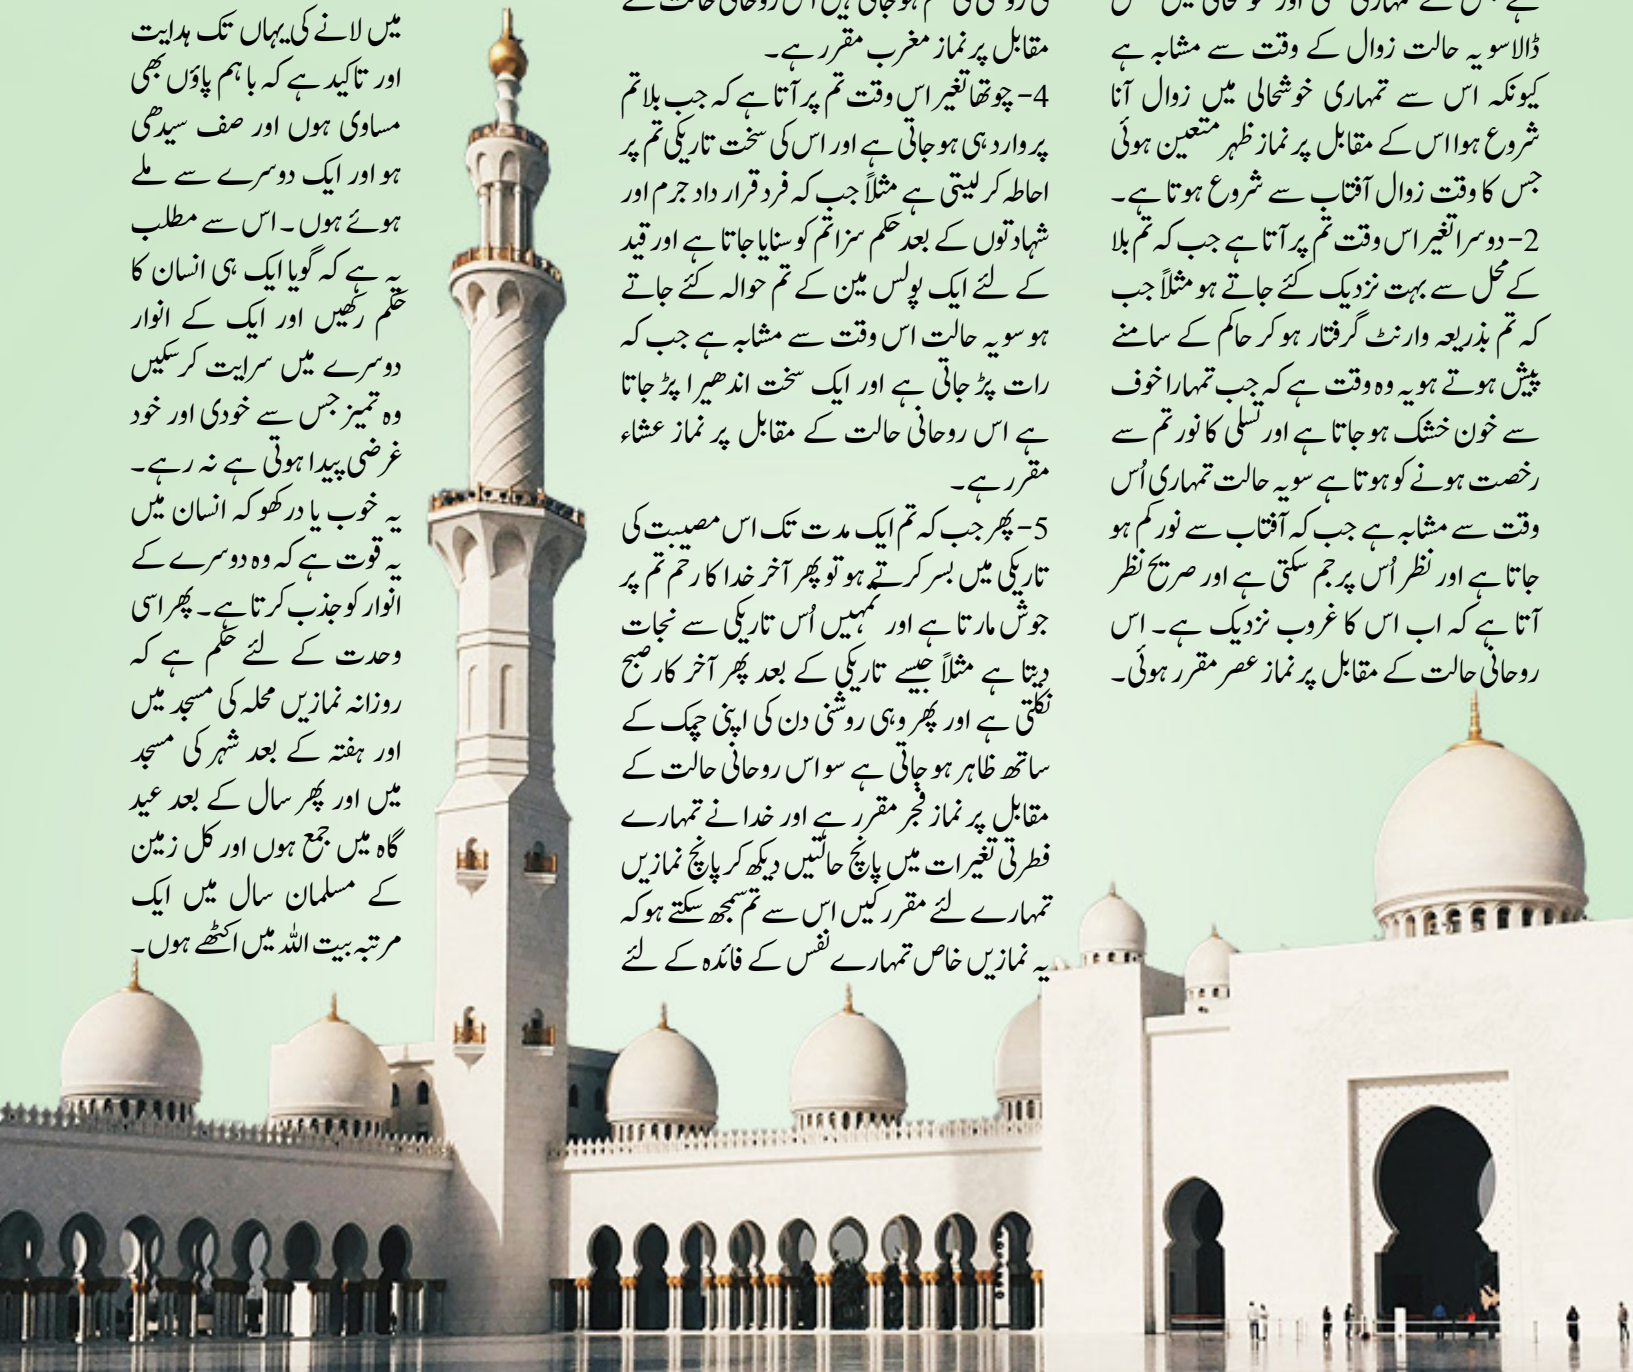 ڈالا سو یہ حالت زوال کے وقت سے مشابہ ہے
کیونکہ اس سے تمہاری خوشحالی میں زوال آنا
شروع ہوا اس کے مقابل پر نماز ظہر متعین ہوئی
جس کا وقت زوال آفتاب سے شروع ہوتا ہے۔
2- دوسرا تغیر اس وقت تم پر آتا ہے جب کہ تم بلا
کے محل سے بہت نزدیک کئے جاتے ہو مثلاً جب
کہ تم بذریعہ وارنٹ گرفتار ہو کر حاکم کے سامنے
پیش ہوتے ہو یہ وہ وقت ہے کہ جب تمہارا خوف
سے خون خشک ہو جاتا ہے اور تسلی کا نور تم سے
رخصت ہونے کو ہوتا ہے سو یہ حالت تمہاری اُس
وقت سے مشابہ ہے جب کہ آفتاب سے نور کم ہو
جاتا ہے اور نظر اُس پر جم سکتی ہے اور صریح نظر
آتا ہے کہ اب اس کا غروب نزدیک ہے۔ اس
روحانی حالت کے مقابل پر نماز عصر مقرر ہوئی۔
کی روشنی گم ہو جاتی ہیں اس روحانی حالت کے
مقابل پر نماز مغرب مقرر ہے۔
4- چوتھا تغیر اس وقت تم پر آتا ہے کہ جب بلا تم
پر وارد ہی ہو جاتی ہے اور اس کی سخت تاریکی تم پر
احاطہ کر لیتی ہے مثلاً جب کہ فرد قرار داد جرم اور
شہادتوں کے بعد حکم سزا تم کو سنایا جاتا ہے اور قید
کے لئے ایک پولس مین کے تم حوالہ کئے جاتے
ہو سو یہ حالت اس وقت سے مشابہ ہے جب کہ
رات پڑ جاتی ہے اور ایک سخت اندھیرا پڑ جاتا
ہے اس روحانی حالت کے مقابل پر نماز عشاء
مقرر ہے۔
5- پھر جب کہ تم ایک مدت تک اس مصیبت کی
تاریکی میں بسر کرتے ہو تو پھر آخر خدا کا رحم تم پر
جوش مارتا ہے اور تمہیں اُس تاریکی سے نجات
دیتا ہے مثلاً جیسے تاریکی کے بعد پھر آخر کار صبح
نکلتی ہے اور پھر وہی روشنی دن کی اپنی چمک کے
ساتھ ظاہر ہو جاتی ہے سو اس روحانی حالت کے
مقابل پر نماز فجر مقرر ہے اور خدا نے تمہارے
فطرتی تغیرات میں پانچ حالتیں دیکھ کر پانچ نمازیں
تمہارے لئے مقرر کیں اس سے تم سمجھ سکتے ہو کہ
یہ نمازیں خاص تمہارے نفس کے فائدہ کے لئے
میں لانے کی یہاں تک ہدایت
اور تاکید ہے کہ باہم پاؤں بھی
مساوی ہوں اور صف سیدھی
ہو اور ایک دوسرے سے ملے
ہوئے ہوں۔ اس سے مطلب
یہ ہے کہ گویا ایک ہی انسان کا
حکم رکھیں اور ایک کے انوار
دوسرے میں سرایت کر سکیں
وہ تمیز جس سے خودی اور خود
غرضی پیدا ہوتی ہے نہ رہے۔
یہ خوب یاد رکھو کہ انسان میں
یہ قوت ہے کہ وہ دوسرے کے
انوار کو جذب کرتا ہے۔ پھر اسی
وحدت کے لئے حکم ہے کہ
روزانہ نمازیں محلہ کی مسجد میں
اور ہفتہ کے بعد شہر کی مسجد
میں اور پھر سال کے بعد عید
گاہ میں جمع ہوں اور کل زمین
کے مسلمان سال میں ایک
مرتبہ بیت اللہ میں اکٹھے ہوں۔